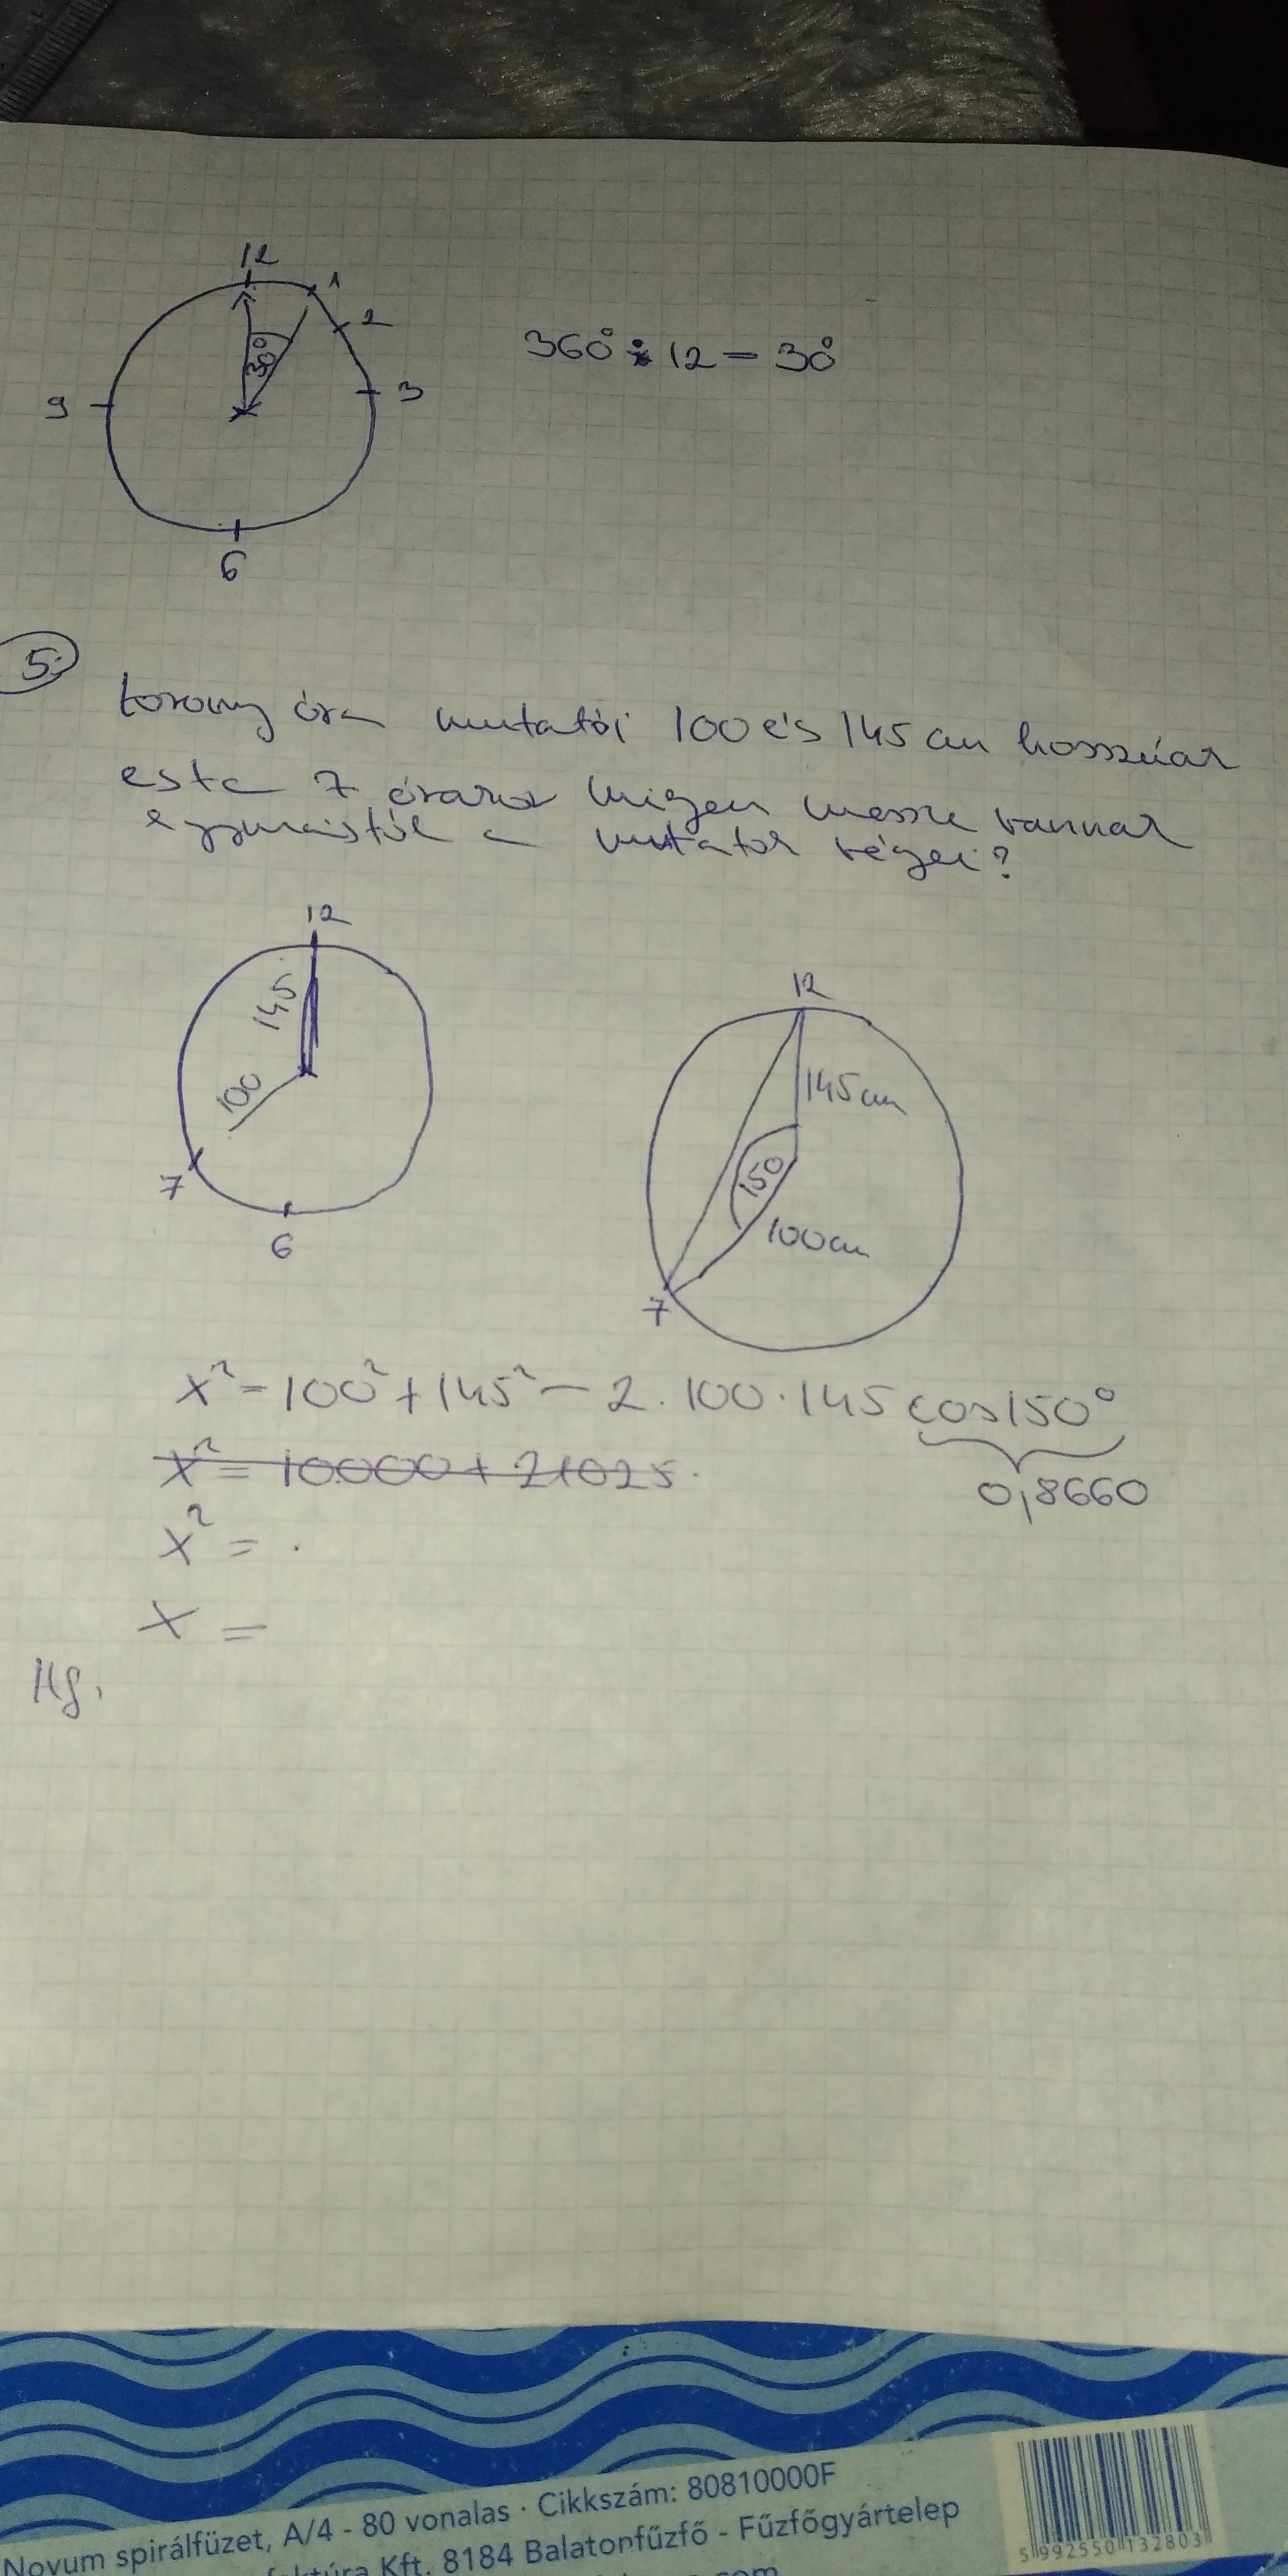 12
1
2
30°
360° : 12 = 30°
9
3
6
5.
torony óra mutatói 100 és 145 cm hosszúak
este 7 órakor milyen messze vannak
egymástól a mutatók végei?
12
145
100
7
6
12
145 cm
150
100 cm
7
x² = 100² + 145² - 2 · 100 · 145 cos 150°
x² = 10000 + 21025
0,8660
x² = .
x =
Novum spirálfüzet, A/4 - 80 vonalas · Cikkszám: 80810000F
Kft. 8184 Balatonfűzfő - Fűzfőgyártelep
5 992550 132803